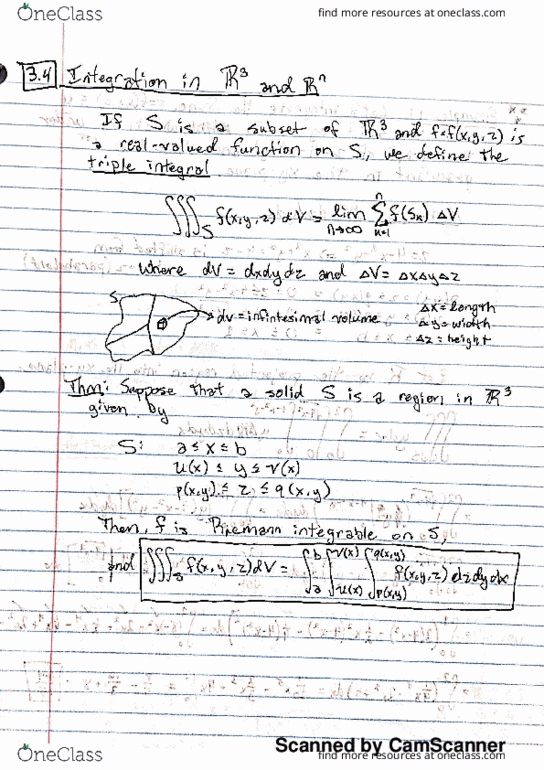 OneClass
find more resources at oneclass.com
3.4 Integration in ℝ³ and ℝⁿ
If S is a subset of ℝ³ and f=f(x,y,z) is
a real-valued function on S, we define the
triple integral
∭_S f(x,y,z) dV = lim_{n→∞} Σ_{k=1}^{n} f(S_k) ΔV
where dV = dxdydz and ΔV = ΔxΔyΔz
S
dv = infintesimal volume
Δx = length
Δy = width
Δz = height
Thm: Suppose that a solid S is a region in ℝ³
given by
S: a ≤ x ≤ b
u(x) ≤ y ≤ v(x)
p(x,y) ≤ z ≤ q(x,y)
Then, f is Riemann integrable on S,
and ∭_S f(x,y,z)dV = ∫_a^b ∫_{u(x)}^{v(x)} ∫_{p(x,y)}^{q(x,y)} f(x,y,z) dzdydx
Scanned by CamScanner
OneClass
find more resources at oneclass.com